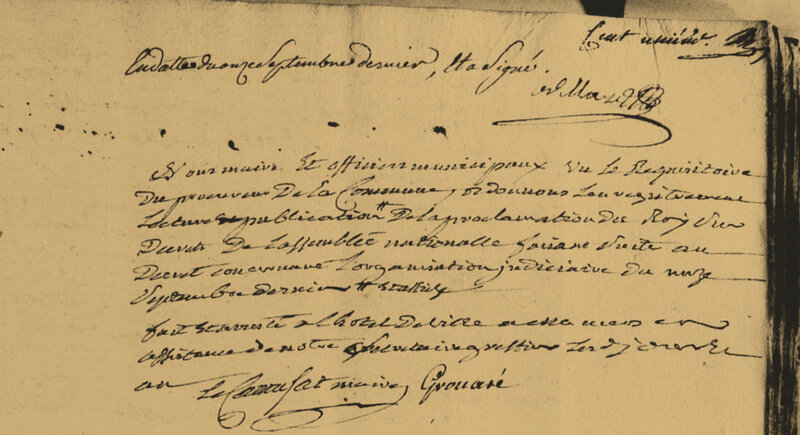 Cent unième.
En datte du onze Septembre dernier, Et a Signé.
Nous maire Et officiers municipaux vu Le Requisitoire
Du procureur De La Commune, ordonnons L'enregistrement
Lecture publication De la proclamation du Roy D'un
Decret De L'assemblée nationalle faisant Suite au
Decret concernant L'organisation judiciaire du onze
Septembre dernier Et affiche
fait Et arresté a L'hotel De Ville
assistance de notre Secretaire greffier Les dj jour Et
an Le Camusat maire Grouaré